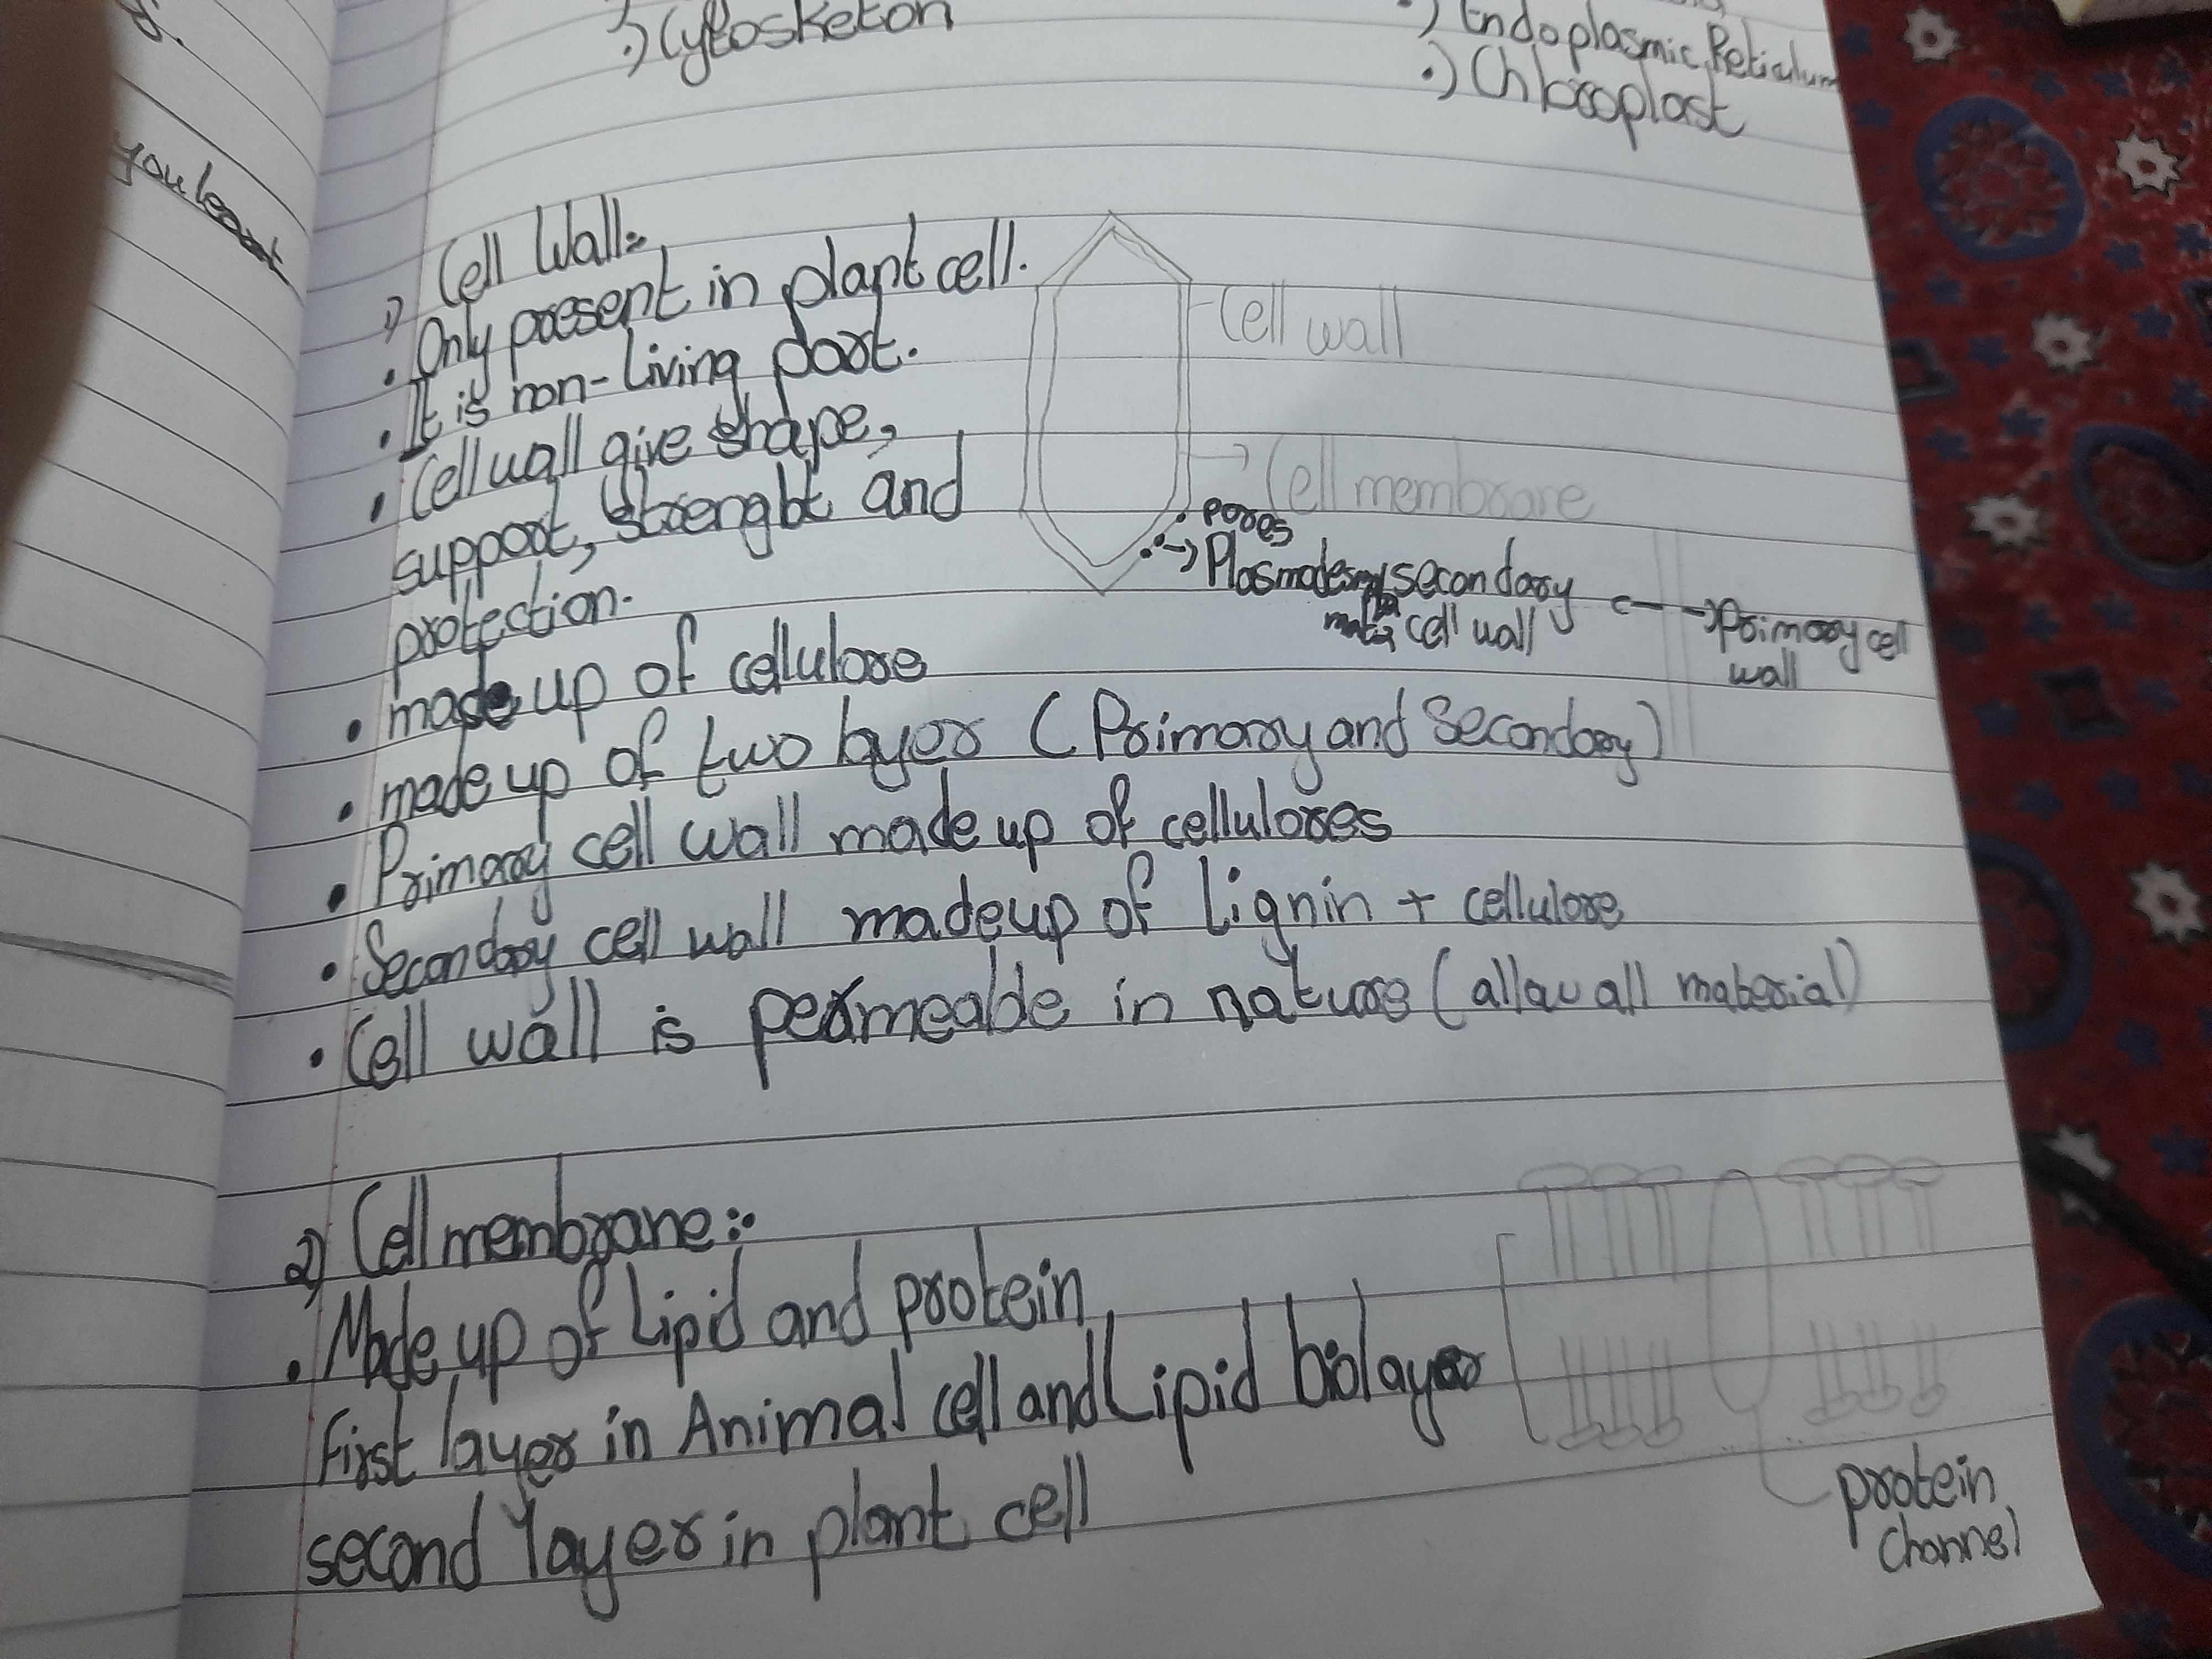 Your layer
•) Cytosketon
•) Endoplasmic Reticulum
•) Chloroplast
1) Cell Wall:
• Only present in plant cell.
• It is non-living part.
• Cell wall give shape,
support, strenght and
protection.
cell wall
→ Cell membrane
pores
→ Plasmodesmata
secondary cell wall ← → Primary cell wall
• made up of cellulose
• made up of two layer (Primary and Secondary)
• Primary cell wall made up of celluloses
• Secondary cell wall made up of Lignin + cellulose
• Cell wall is permeable in nature (allow all material)
2) Cell membrane:
• Made up of Lipid and protein
First layer in Animal cell and Lipid bilayer
second layer in plant cell
protein
channel